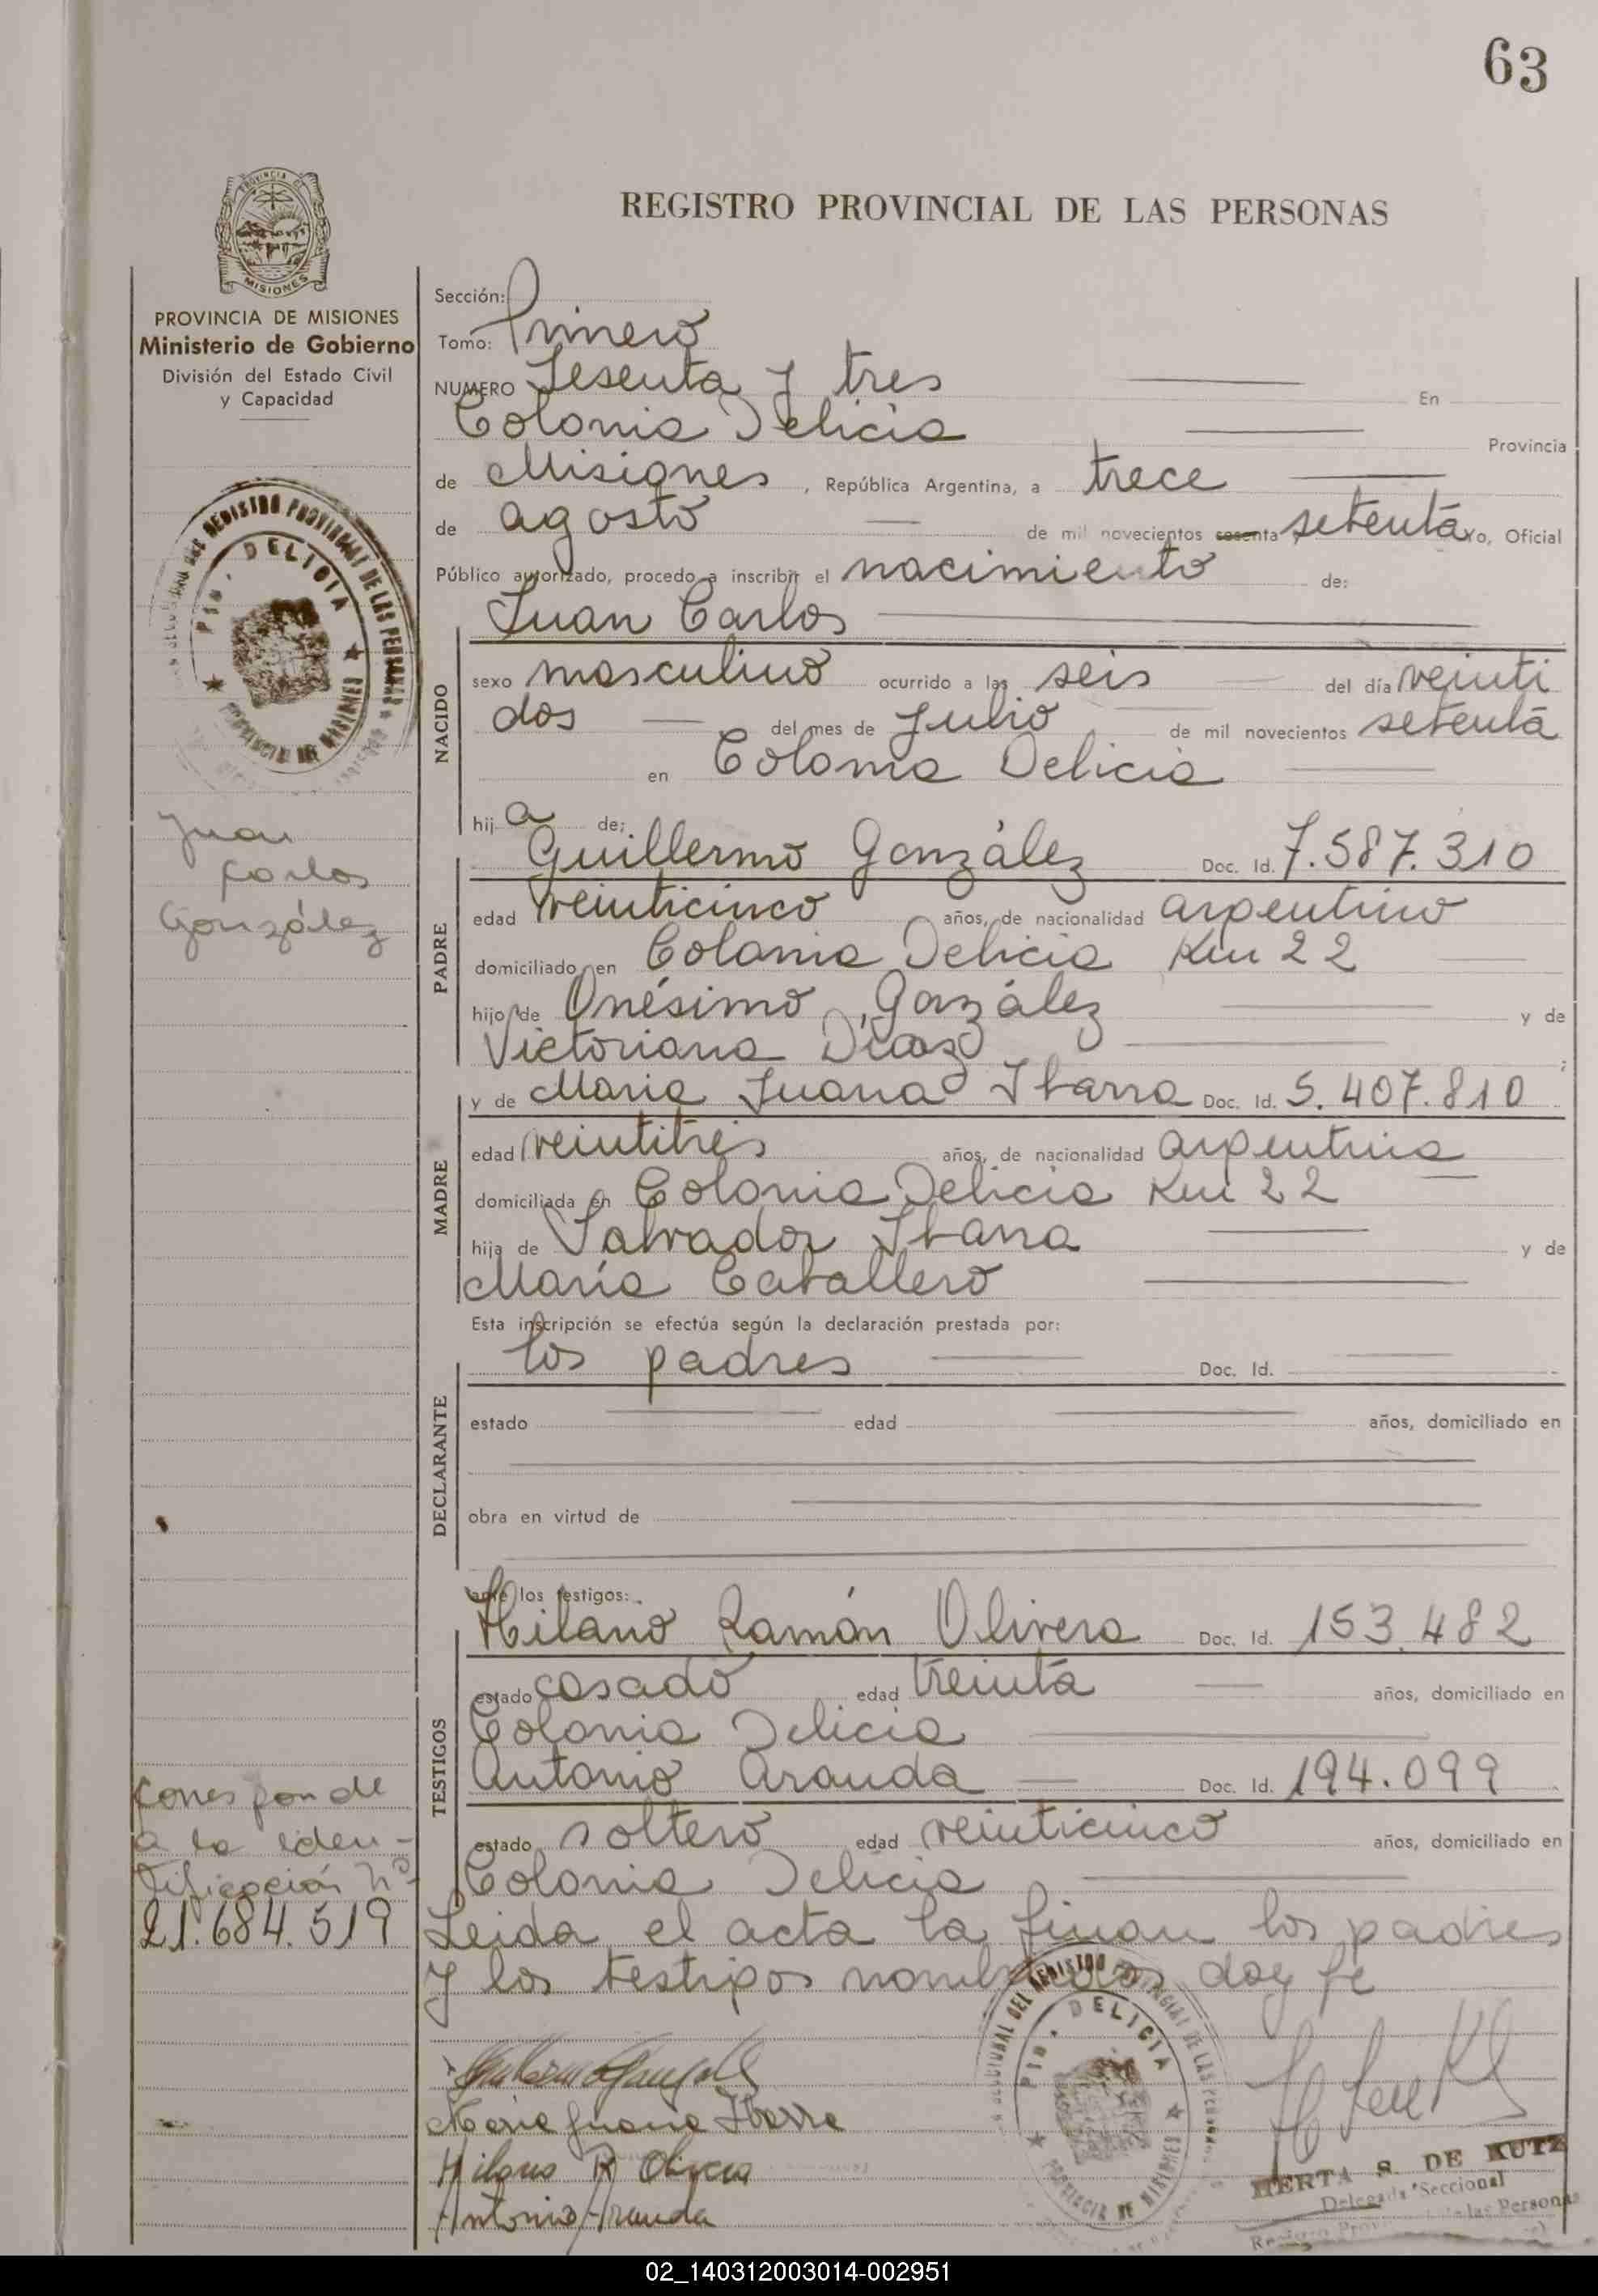 63
PROVINCIA DE MISIONES
Ministerio de Gobierno
División del Estado Civil
y Capacidad
REGISTRO PROVINCIAL DE LAS PERSONAS
Sección:
Tomo: Primero
NUMERO Sesenta y tres En
Colonia Delicia Provincia
de Misiones, República Argentina, a trece
de agosto de mil novecientos sesenta y setenta Yo, Oficial
Público autorizado, procedo a inscribir el nacimiento de:
Juan Carlos
NACIDO
sexo masculino ocurrido a las seis del día veinti
dos del mes de julio de mil novecientos setenta
en Colonia Delicia
hij a de:
Guillermo González Doc. Id. 7.587.310
PADRE
edad veinticinco años, de nacionalidad argentino
domiciliado en Colonia Delicia Km 22
hijo de Onésimo González y de
Victoriana Díaz;
y de Maria Juana Ibarra Doc. Id. 5.407.810
MADRE
edad veintitres años, de nacionalidad argentina
domiciliada en Colonia Delicia Km 22
hija de Salvador Ibarra y de
María Caballero
Esta inscripción se efectúa según la declaración prestada por:
los padres Doc. Id.
DECLARANTE
estado edad años, domiciliado en
obra en virtud de
ante los testigos:
Hilario Ramón Olivera Doc. Id. 153.482
TESTIGOS
estado casado edad treinta años, domiciliado en
Colonia Delicia
Antonio Aranda Doc. Id. 194.099
estado soltero edad veinticinco años, domiciliado en
Colonia Delicia
Leida el acta la firman los padres
y los testigos nombrados doy fe
Juan
Carlos
González
Corresponde
a la iden-
tificación Nº
21.684.519
Maria Juana Ibarra
Hilario R Olivera
Antonio Aranda
HERTA S. DE KUTZ
Delegada Seccional
DELICIA
PROVINCIA DE MISIONES
02_140312003014-002951